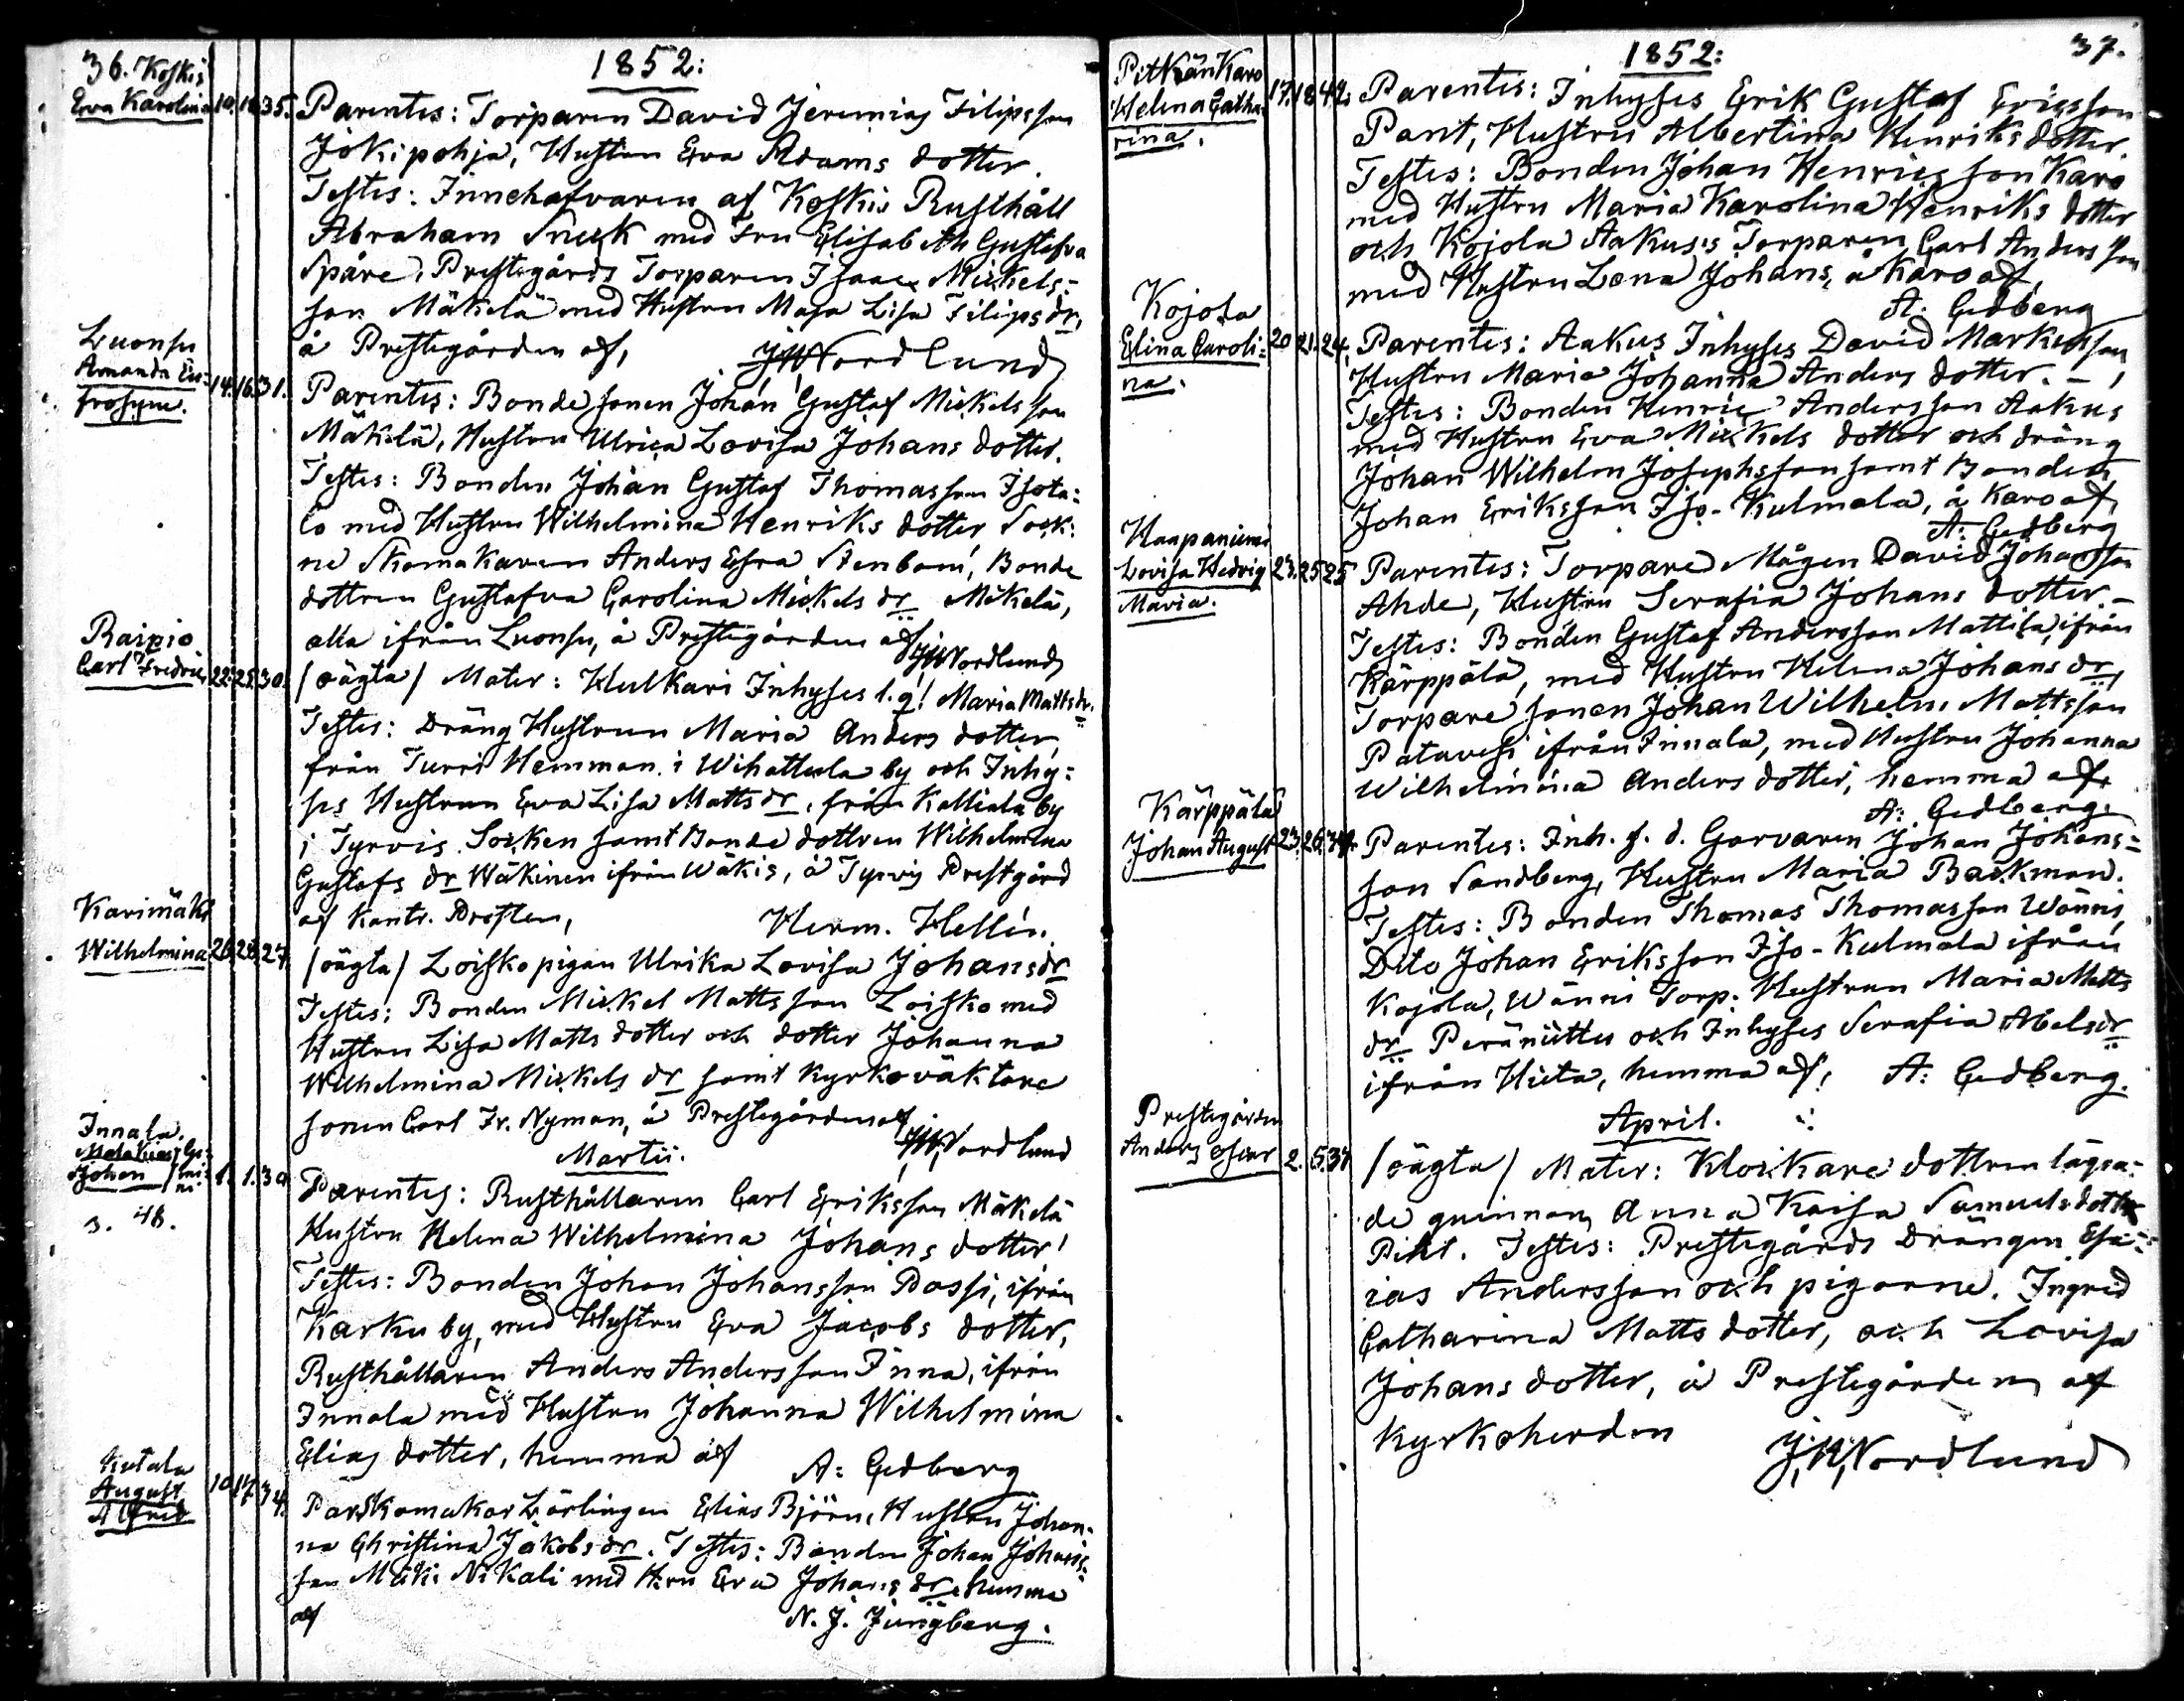 36. Koskis
1852:
Eva Karolina 10. 18. 35.
Parentes: Torparen David Jeremias Filipsson
Jokipohja, Hustru Eva Adams dotter.
Testes: Innehafvaren af Koskis Rusthåll
Abraham Sneck med Fru Elisabeth Gustafva
Spåre, Prestegårds Torparen Isaac Mickels-
son Mäkelä med Hustru Maja Lisa Filips dr,
å Prestegården af, JWNordlund
Luonsu
Amanda Eu-
frosyne. 14. 16. 31.
Parentes: Bondesonen Johan Gustaf Mickelsson
Mäkelä, Hustru Ulrica Lovisa Johans dotter.
Testes: Bonden Johan Gustaf Thomasson Isota-
lo med Hustru Wilhelmina Henriks dotter Sock-
ne Skomakaren Anders Esra Stenbom, Bonde
dottren Gustafva Carolina Mickels dr Mäkelä,
alla ifrån Luonsu, å Prestegården af, JWNordlund
Raipio
Carl Fredric 22. 25. 30.
/oägta/ Mater: Hulkari Inhyses l. q! Maria Matts dr.
Testes: Dräng Hustrun Maria Anders dotter,
från Turri Hemman i Wihattula by och Inhy-
ses Hustrun Eva Lisa Matts dr, från Kalliala by
i Tyrvis Socken samt Bonde dottren Wilhelmina
Gustafs dr Wäkinen ifrån Wäkis, å Tyrvis Prestgård
af Kontr. Prosten, Herm. Hellén.
Karimäki
Wilhelmina 26. 28. 27.
/oägta/ Loisko pigan Ulrika Lovisa Johans dr
Testes: Bonden Mickel Mattsson Loisko med
Hustru Lisa Matts dotter och dotter Johanna
Wilhelmina Mickels dr samt Kyrkoväktare
sonen Carl Fr. Nyman, å Prestegården af JWNordlund
Martii.
Innala.
Malakias
Johan /Ge-
mi-
ni 1. 1. 30.
s. 48.
Parentes: Rusthållaren Carl Eriksson Mäkelä
Hustru Helena Wilhelmina Johans dotter!
Testes: Bonden Johan Johansson Passi, ifrån
Karku by, med Hustru Eva Jacobs dotter,
Rusthållaren Anders Andersson Inna, ifrån
Innala med Hustru Johanna Wilhelmina
Elias dotter, hemma af
A: Gedberg
Kutala
August
Alfred 10. 17. 34.
Par. Skomakar Lärlingen Elias Björn, Hustru Johan-
na Christina Jakobs dr. Testes: Bonden Johan Johans-
son Mäki Nikali med Hru Eva Johans dr hemma
af N. J. Jungberg.
37.
1852:
Pitkän Karo
Helena Catha-
rina. 17. 18. 42.
Parentes: Inhyses Erik Gustaf Ericsson
Pant, Hustru Albertina Henriks dotter.
Testes: Bonden Johan Henricsson Karo
med Hustru Maria Karolina Henriks dotter
och Kojola Aakus's Torparen Carl Andersson
med Hustru Lena Johans, å Karo af
A: Gedberg
Kojola
Elina Caroli-
na. 20. 21. 24.
Parentes: Aakus Inhyses David Markusson,
Hustru Maria Johanna Anders dotter. –
Testes: Bonden Henric Andersson Aakus
med Hustru Eva Mickels dotter och dräng
Johan Wilhelm Josephsson samt Bonden
Johan Eriksson Iso-Kulmala, å Karo af,
A: Gedberg
Haapaniemi
Lovisa Hedvig
Maria. 23. 25. 25
Parentes: Torpare Mågen David Johansson
Ahde, Hustru Serafia Johans dotter. –
Testes: Bonden Gustaf Andersson Mattila, ifrån
Kärppälä, med Hustru Helena Johans dr,
Torpare sonen Johan Wilhelm Mattsson
Patavesi ifrån Innala, med Hustru Johanna
Wilhelmina Anders dotter, hemma af,
A: Gedberg.
Kärppälä
Johan August 23. 26.
Parentes: Inh. f. d. Garvaren Johan Johans-
son Sandberg, Hustru Maria Backman.
Testes: Bonden Thomas Thomasson Wänni,
Dito Johan Eriksson Iso-Kulmala ifrån
Kojola, Wänni Torp. Hustrun Maria Matts
dr Peräniittu och Inhyses Serafia Abels dr
ifrån Hiita, hemma af, A: Gedberg.
April.
Prestegården
Anders Oscar 2. 5. 37
/oägta/ Mater: Klockare dottren lägra-
de quinnan Anna Kaisa Samuelsdotter
Pihl. Testes: Prestegårds Drängen Esa-
ias Andersson och pigorne. Ingrid
Catharina Matts dotter, och Lovisa
Johans dotter, å Prestegården af
Kyrkoherden
J,W,Nordlund